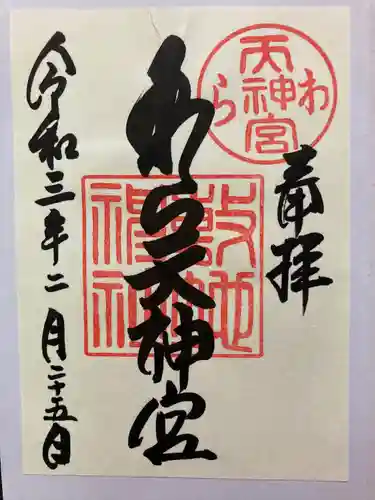 奉拝
わら天神宮
令和三年二月二十五日
わら天神宮
敷地神社